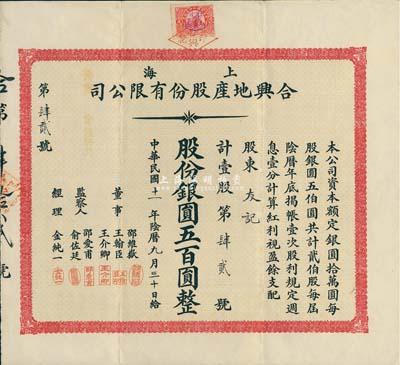 上海
合興地產股份有限公司
本公司資本額定銀圓拾萬圓每
股銀圓五佰圓共計貳佰股每屆
陰曆年底揭帳壹次股利規定週
息壹分計算紅利視盈餘支配
股東 友記
計壹股第肆貳號
股份銀圓五百圓整
中華民國十一年陰曆九月三十日給
董事 鄒維嶽
王翰臣
王介卿
監察人 鄒愛甫
俞佐廷
經理 金純一
第肆貳號